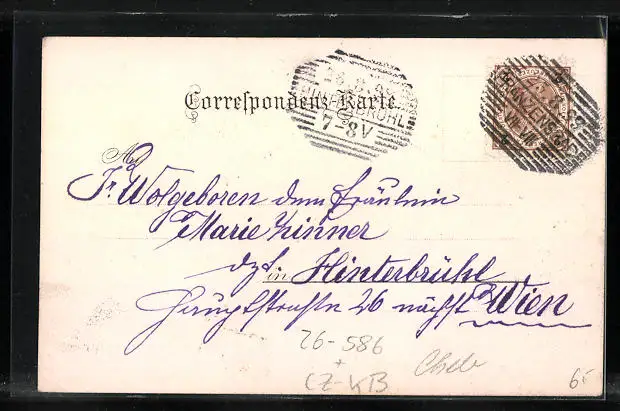 Correspondenz-Karte.
HINTERBRÜHL
7-8V
FRANZENSBAD
An
Ihr Wolgeboren dem Fräulein
Marie Zinner
dzt in Hinterbrühl
Hauptstraße 26 nächst Wien
26-586
+
CZ-KB
Cheb
6.-